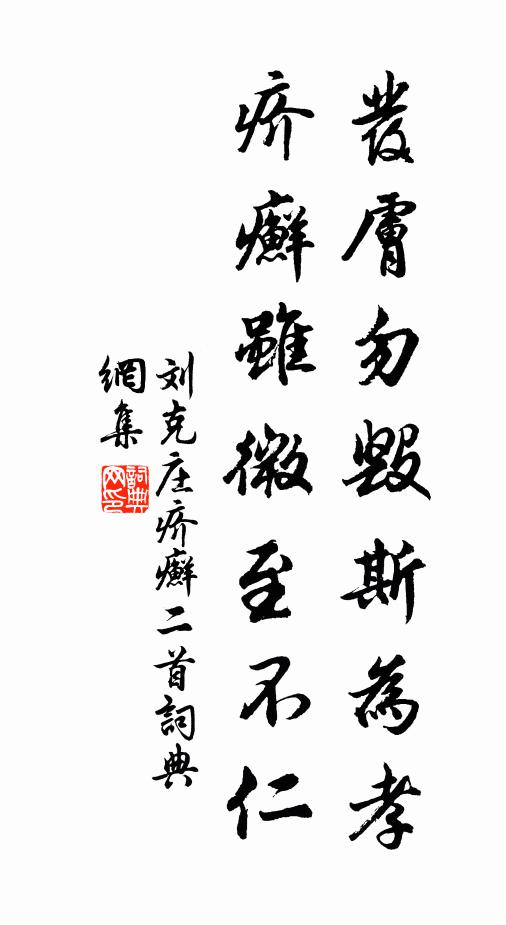 發膚勿毀斯為孝
疥癬雖微至不仁
刘克庄疥癬二首詞典
網集
詞典网印